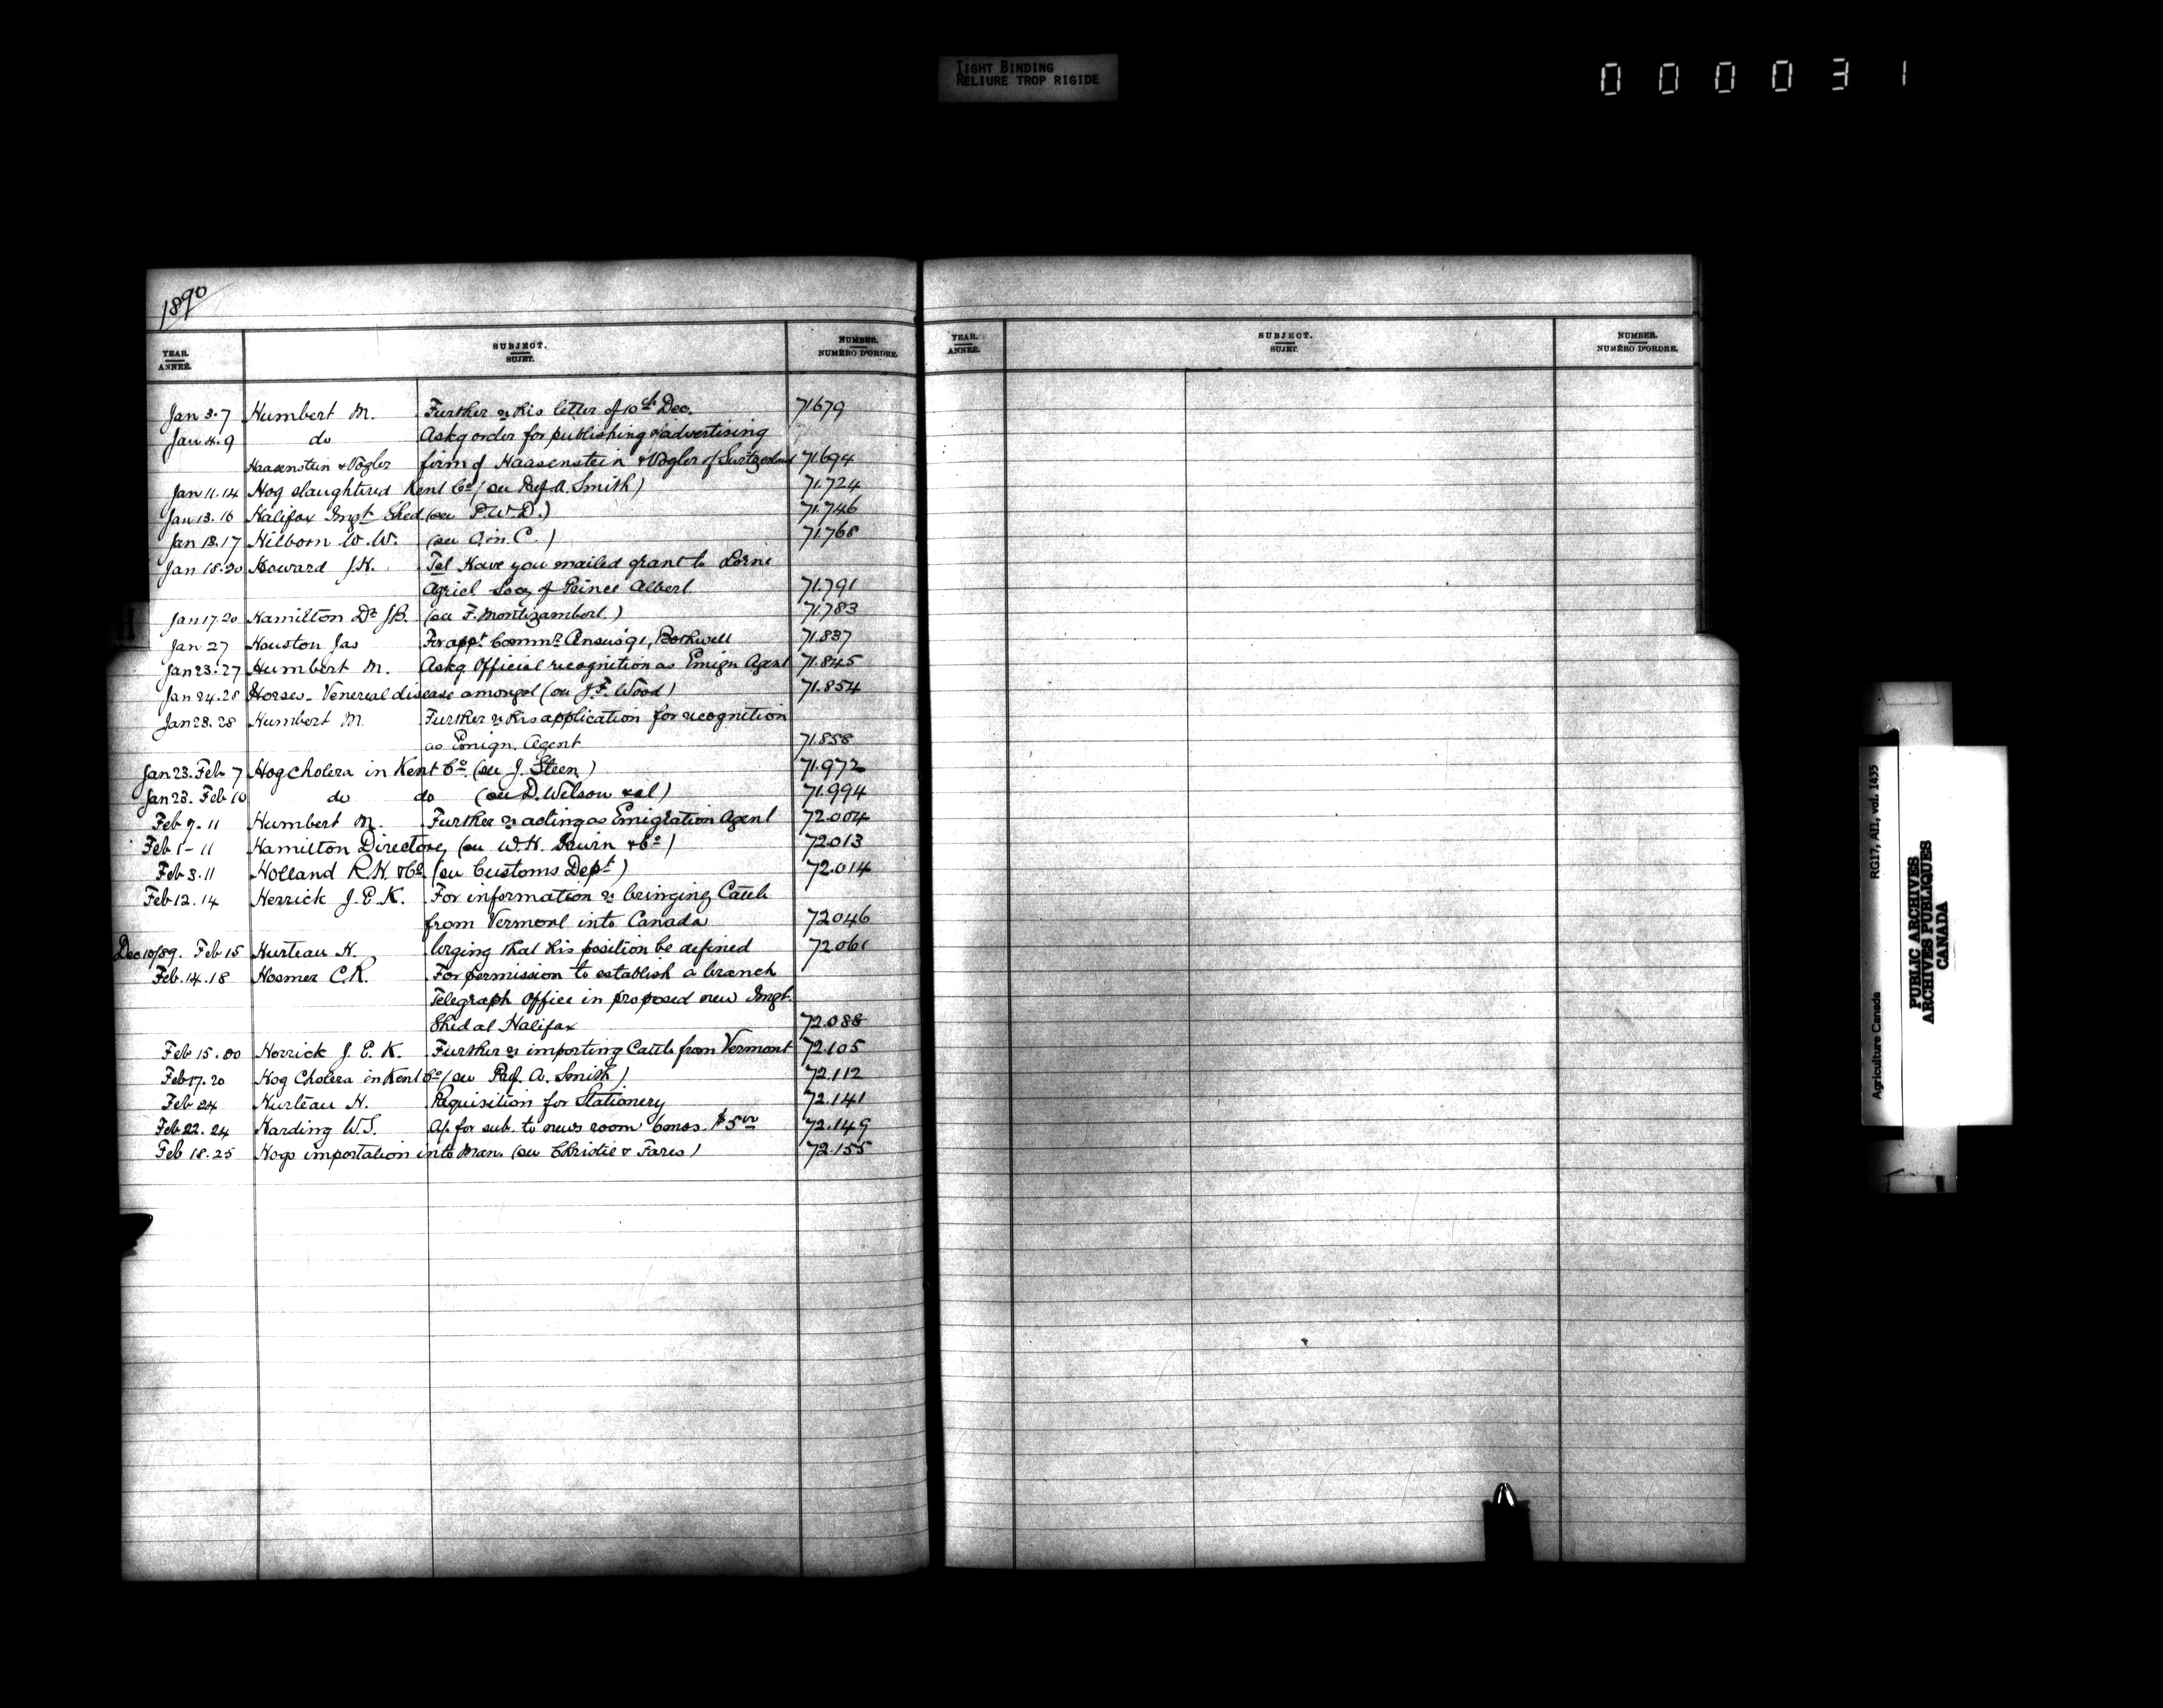 TIGHT BINDING
RELIURE TROP RIGIDE
000031
1890
YEAR.
ANNÉE.
SUBJECT.
SUJET.
NUMBER.
NUMÉRO D'ORDRE.
Jan 3.7 Humbert M. Further re his letter of 10th Dec. 71679
Jan 4.9 do Askg order for publishing & advertising
Haasenstein & Vogler firm of Haasenstein & Vogler of Switzerland 71.694
Jan 11.14 Hog slaughtered Kent Co (see Prof A. Smith) 71.724
Jan 13.16 Halifax Imgt Shed (see P.W.D.) 71.746
Jan 13.17 Hilborn W.W. (see O in C.) 71.768
Jan 18.20 Howard J.H. Tel Have you mailed grant to Lorne
Agricl Socy of Prince Albert 71.791
Jan 17.20 Hamilton Dr J.B. (see F. Montizambert.) 71.783
Jan 27 Houston Jas For appt Commr Census 91, Bothwell 71.837
Jan 23.27 Humbert M. Askg Official recognition as Emign Agent 71.845
Jan 24.28 Horses - Venereal disease amongst (see J.F. Wood) 71.854
Jan 28.28 Humbert M. Further re his application for recognition
as Emign. Agent 71.858
Jan 23. Feb 7 Hog cholera in Kent Co (see J. Steen) 71.972
Jan 23. Feb 10 do do (see D. Wilson & al) 71.994
Feb 7.11 Humbert M. Further re acting as Emigration Agent 72.004
Feb 1-11 Hamilton Directory (see W.H. Irwin & Co) 72.013
Feb 3.11 Holland R.H. & Co (see Customs Dept) 72.014
Feb 12.14 Herrick J.E.K. For information re bringing Cattle
from Vermont into Canada 72046
Dec 10/89. Feb 15 Hurteau H. Urging that his position be defined 72.061
Feb.14.18 Hosmer C.R. For permission to establish a branch
Telegraph Office in proposed new Imgt.
Shed at Halifax 72.088
Feb 15.00 Herrick J.E.K. Further re importing Cattle from Vermont 72.105
Feb 17.20 Hog Cholera in Kent Co (see Prof. A. Smith) 72.112
Feb 24 Hurteau H. Requisition for Stationery 72.141
Feb 22.24 Harding W.S. A/c for sub. to news room 6mos. $5 00 72.149
Feb 18.25 Hogs importation into Man. (see Christie & Fares) 72.155
YEAR.
ANNÉE.
SUBJECT.
SUJET.
NUMBER.
NUMÉRO D'ORDRE.
H
Agriculture Canada RG17, AII, vol. 1435
PUBLIC ARCHIVES
ARCHIVES PUBLIQUES
CANADA